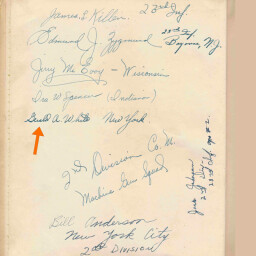 James L Killen 23rd Inf.
Edmund J Zygmund 23rd Inf.
Bayonne, N.J.
Jerry Mc Evoy – Wisconsin
Geo W Spencer (Indiana)
Gerald A. White New York
2nd Division Co. M.
Machine Gun Squad
Jack
2nd Div
23rd Inf
Bill Anderson
New York City
2nd DIVISION